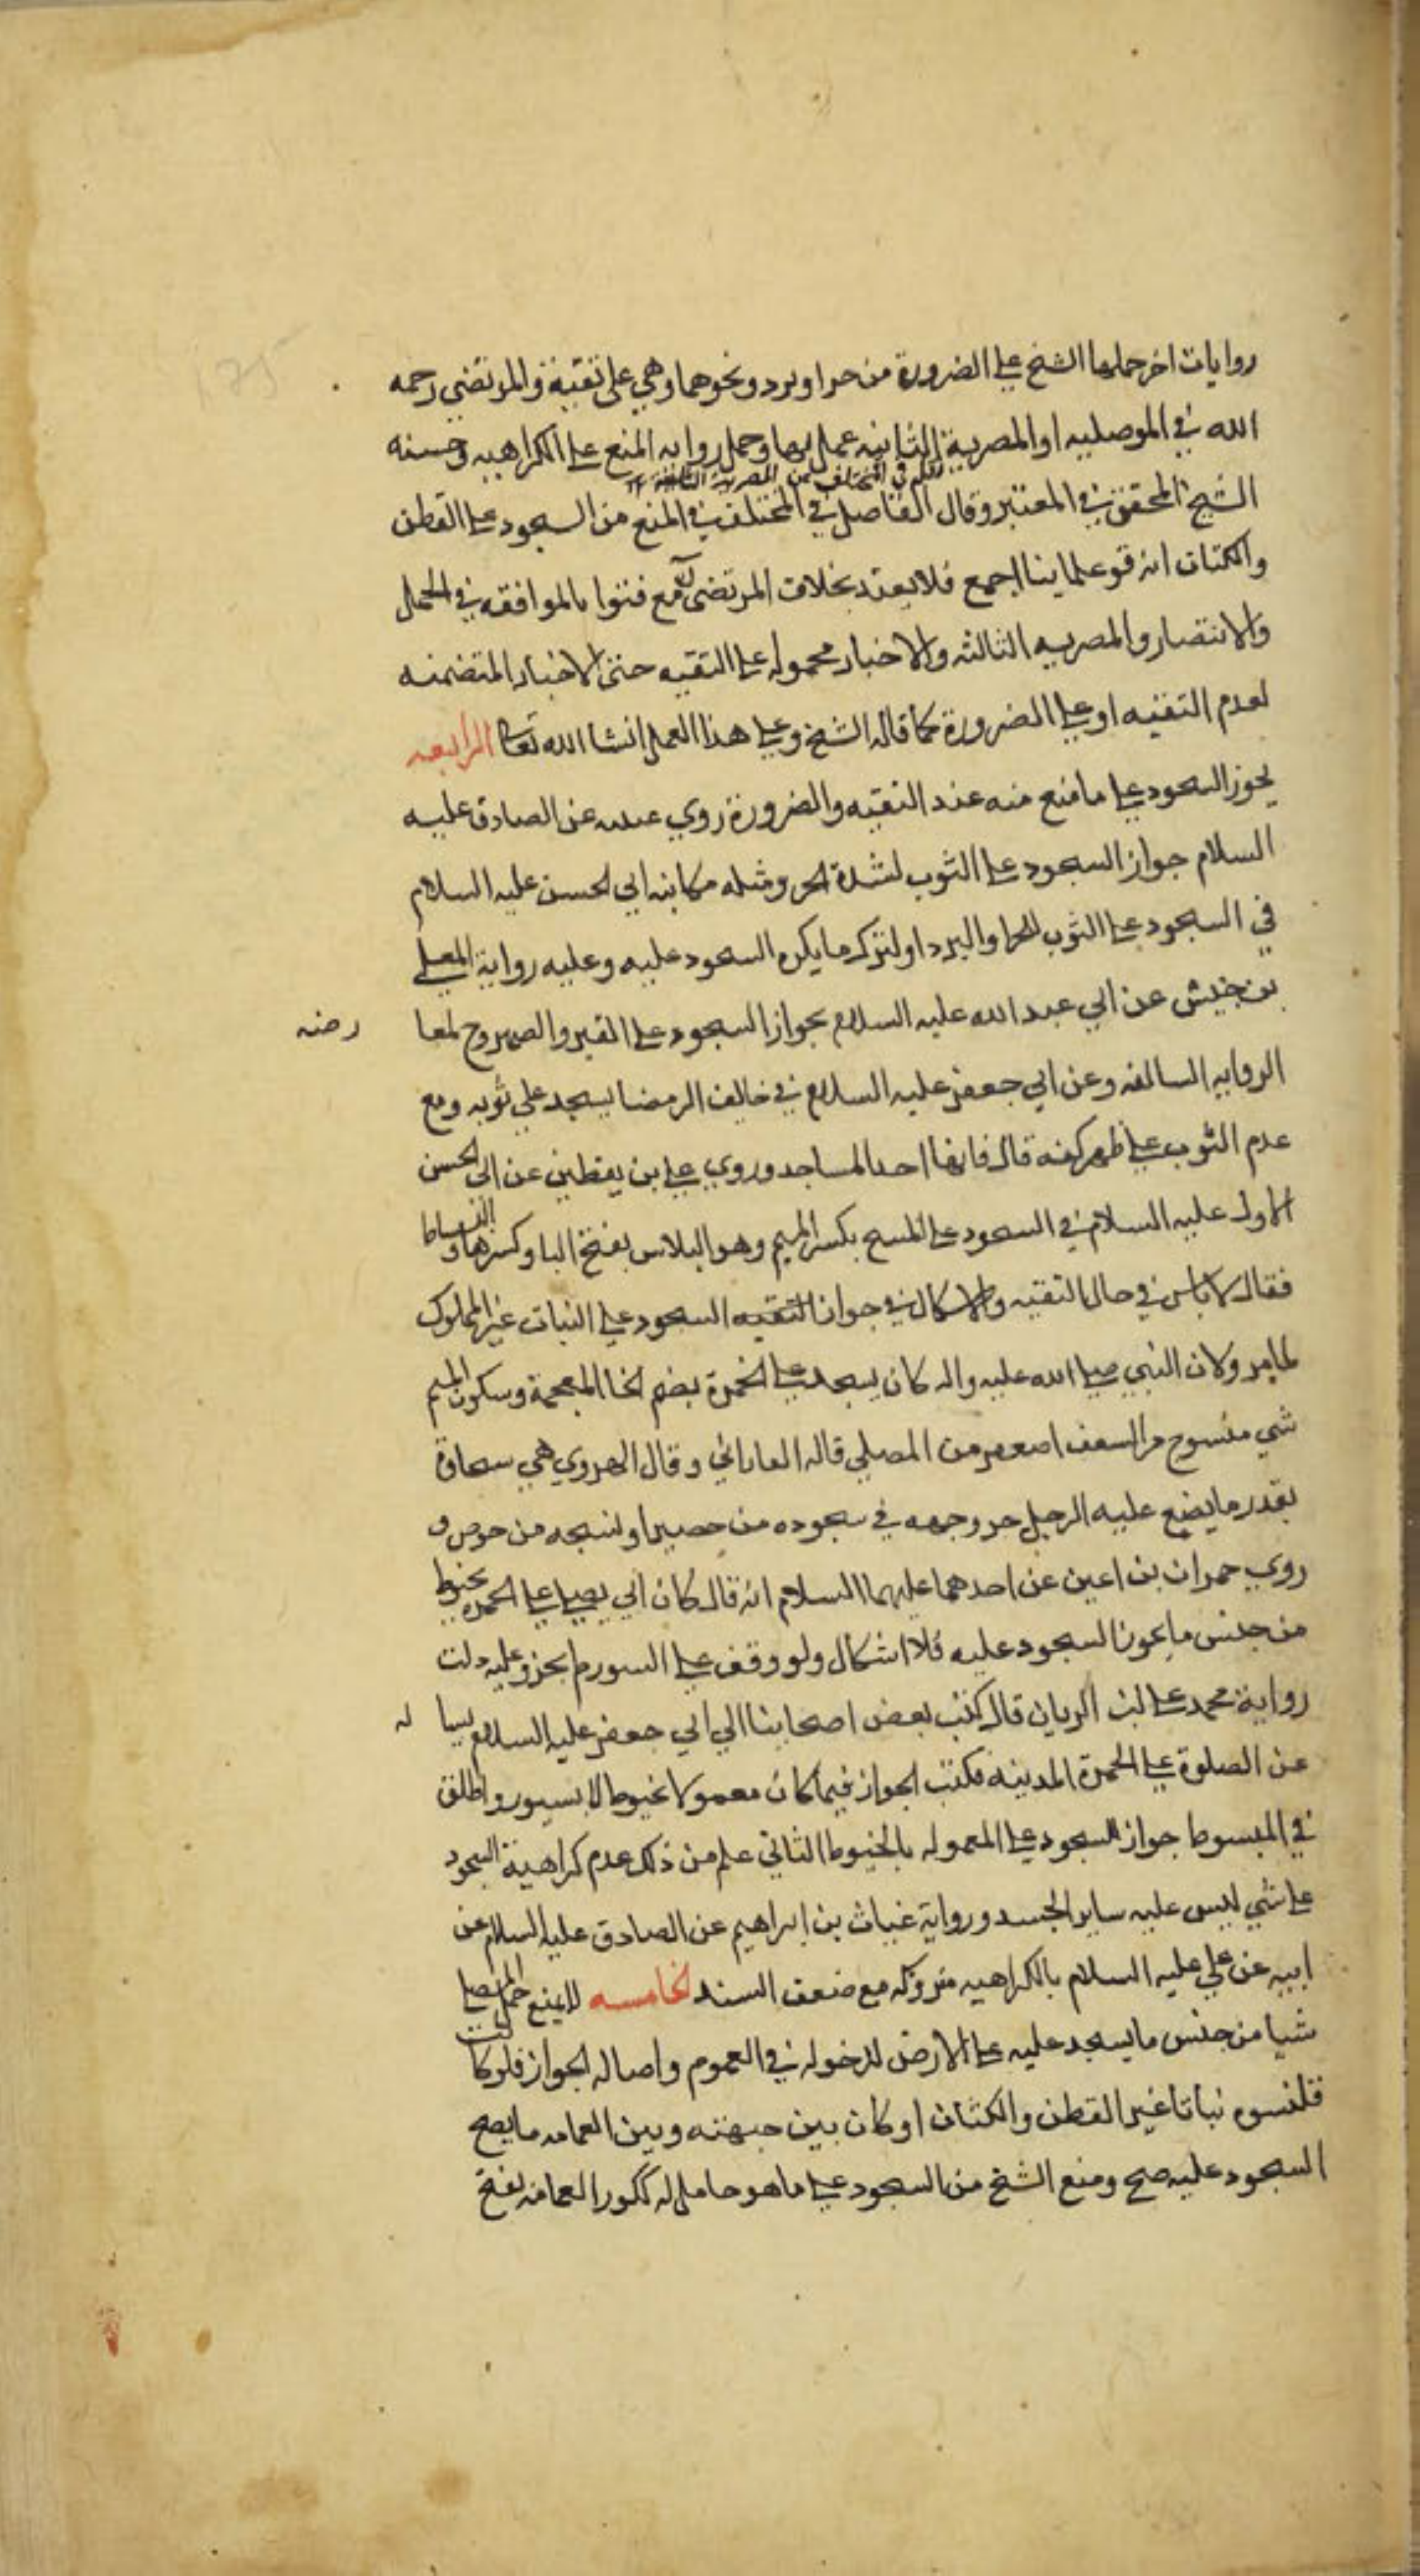 روايات اخر حملها الشيخ على الضرورة من حر او برد ونحوهما وهي على تقية والمرتضى رحمه
الله في الموصليه او المصرية الثانيه عمل بها وحمل روايه المنع على الكراهيه وحسنه
نقله في المختلف عن المصرية الثالثة
الشيخ المحقق في المعتبر وقال الفاضل في المختلف في المنع من السجود على القطن
والكتان انه قو علماينا اجمع فلا يعتد بخلاف المرتضى مع فتوا بالموافقه في الجمل
والانتصار والمصريه الثالثه والاخبار محموله على التقيه حتى الاخبار المتضمنه
لعدم التقيه او على الضرورة كما قاله الشيخ وعلى هذا العمل انشا الله تعالى الرابعه
يجوز السجود على ما منع منه عند التقيه والضرورة روي عيينه عن الصادق عليه
السلام جواز السجود على الثوب لشدة الحر ومثله مكاتبه ابي الحسن عليه السلام
في السجود على الثوب للحر او البرد او لتركه ما يكره السجود عليه وعليه رواية المعلى
بن خنيس عن ابي عبد الله عليه السلام بجواز السجود على القير والصهروج لمعا
رضه
الروايه السالفه وعن ابي جعفر عليه السلام في خائف الرمضا يسجد على ثوبه ومع
عدم الثوب على ظهر كفه قال فانها احد المساجد وروي علي بن يقطين عن ابي الحسن
الاول عليه السلام في السجود على المسح بكسر الميم وهو البلاس بفتح البا وكسرها والبساط
فقال لا باس في حال التقيه ولا اشكال في جواز التقيه السجود على النبات غير المملوك
لما مر ولان النبي صلى الله عليه واله كان يسجد على الخمرة بضم الخا المعجمة وسكون الميم
شي منسوج من السعف اصغر من المصلي قاله الفارابي وقال الهروي هي سجادة
بقدر ما يضع عليه الرجل حر وجهه في سجوده من حصير او نسجه من خوص و
روي حمران بن اعين عن احدهما عليهما السلام انه قال كان ابي يصلي على الخمرة بخيوط
من جنس ما يجوز السجود عليه فلا اشكال ولو وقف على السور لم يجز وعليه دلت
رواية محمد على ابن الريان قال كتب بعض اصحابنا الي ابي جعفر عليه السلام يسا
له
عن الصلوة على الخمرة المدنيه فكتب الجواز فيما كان معمولا بخيوط لا بسيور واطلق
في المبسوط جواز السجود على المعموله بالخيوط الثاني علم من ذلك عدم كراهية السجود
على شي ليس عليه ساير الجسد ورواية غياث بن ابراهيم عن الصادق عليه السلام عن
ابيه عن علي عليه السلام بالكراهيه متروكه مع ضعف السند الخامسه لا يمنع حمل المصلي
شيا من جنس ما يسجد عليه على الارض لدخوله في العموم واصاله الجواز فلو كانت
قلنسوه نباتا غير القطن والكتان او كان بين جبهته وبين العمامه ما يصح
السجود عليه صح ومنع الشيخ من السجود على ما هو حامل له ككور العمامه بفتح